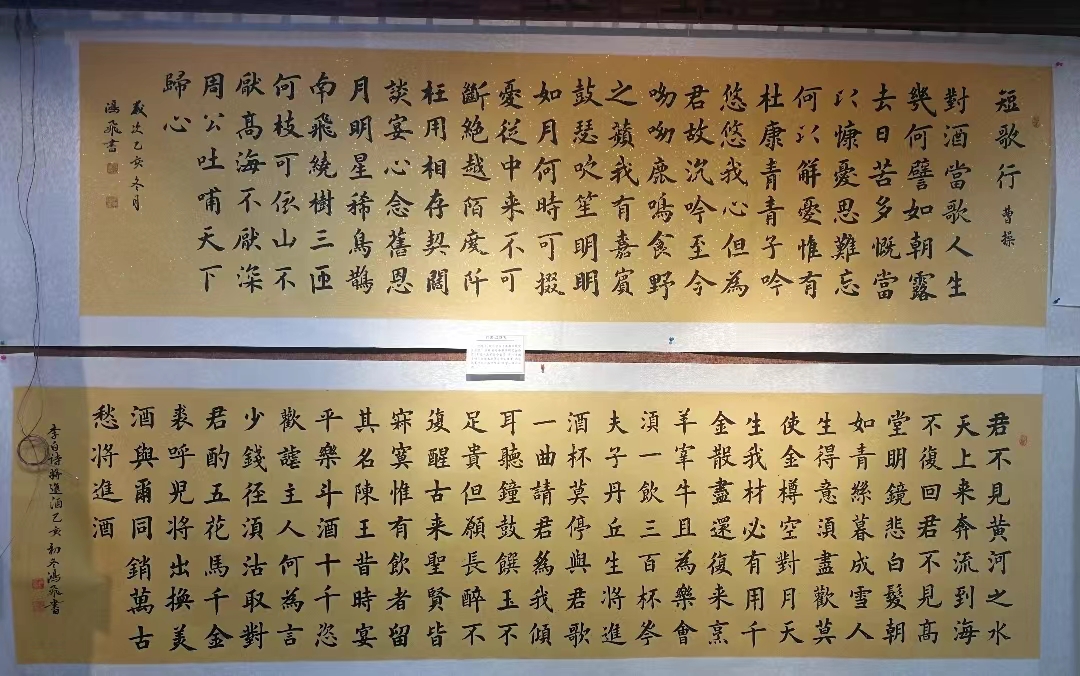 短歌行 曹操
對酒當歌人生
幾何譬如朝露
去日苦多慨當
以慷憂思難忘
何以解憂惟有
杜康青青子吟
悠悠我心但為
君故沉吟至今
呦呦鹿鳴食野
之蘋我有嘉賓
鼓瑟吹笙明明
如月何時可掇
憂從中来不可
斷絕越陌度阡
枉用相存契闊
談宴心念舊恩
月明星稀烏鵲
南飛繞樹三匝
何枝可依山不
厭高海不厭深
周公吐哺天下
歸心
歲次乙亥冬月
鴻飛書
君不見黃河之水
天上来奔流到海
不復回君不見高
堂明鏡悲白髮朝
如青絲暮成雪人
生得意須盡歡莫
使金樽空對月天
生我材必有用千
金散盡還復来烹
羊宰牛且為樂會
須一飲三百杯岑
夫子丹丘生將進
酒杯莫停與君歌
一曲請君為我傾
耳聽鐘鼓饌玉不
足貴但願長醉不
復醒古来聖賢皆
寂寞惟有飲者留
其名陳王昔時宴
平樂斗酒十千恣
歡謔主人何為言
少錢径須沽取對
君酌五花馬千金
裘呼兒將出換美
酒與爾同銷萬古
愁將進酒
李白詩將進酒乙亥初冬鴻飛書